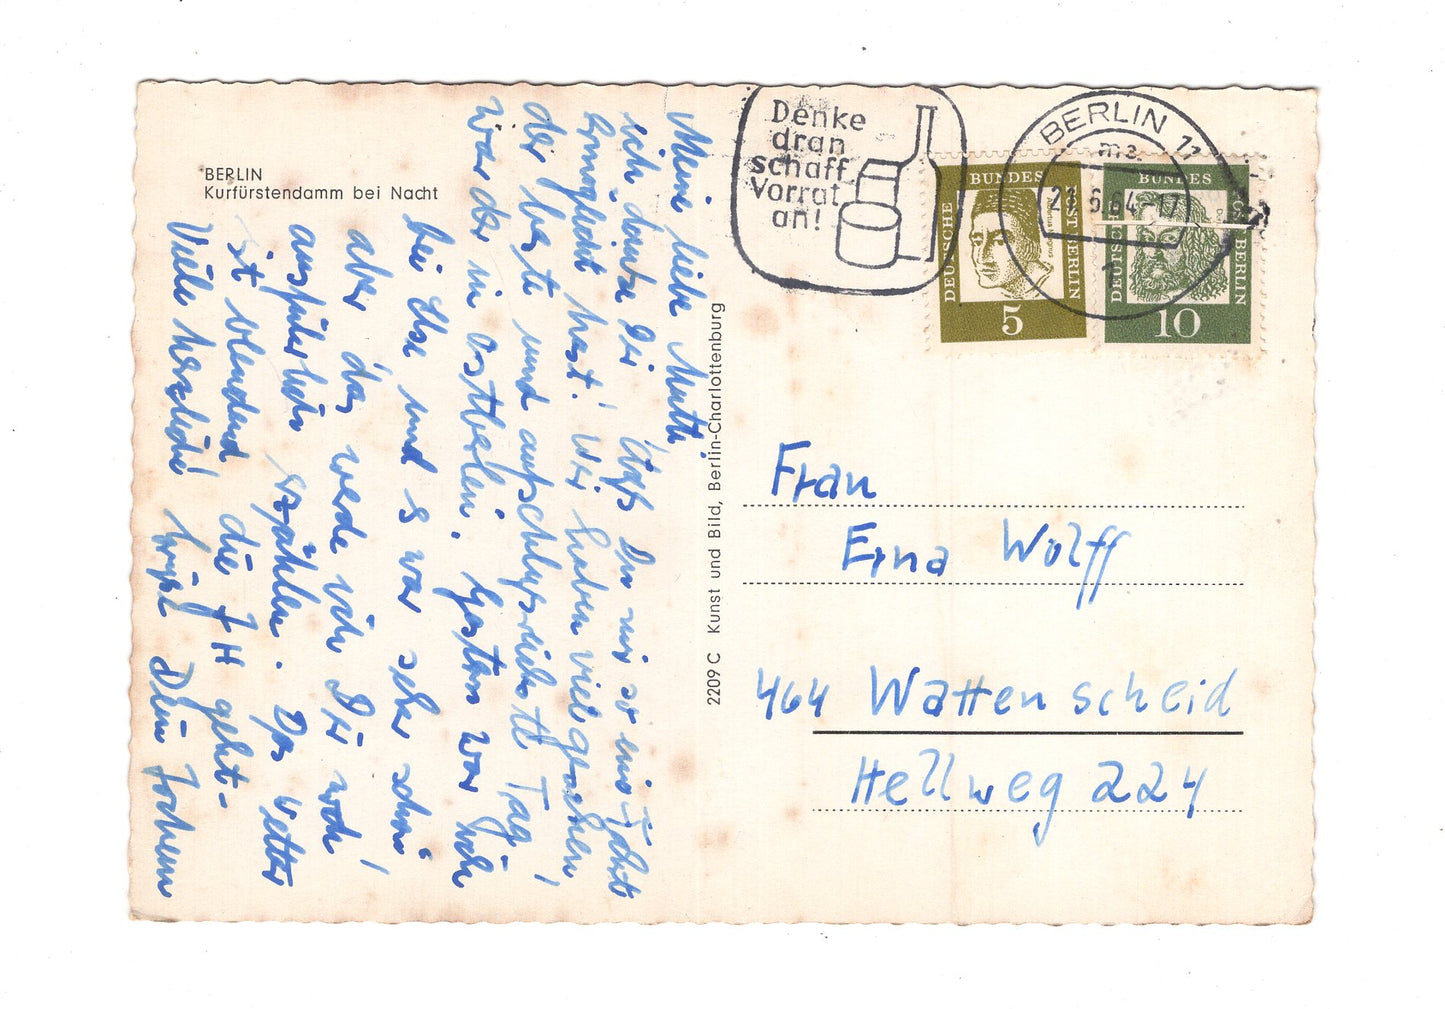 BERLIN
Kurfürstendamm bei Nacht
Meine liebe Mutti
ich danke Dir daß Du mir so eine Fahrt
ermöglicht hast! Wir haben viel gesehen
der beste und aufschlußreichste Tag
war der in Ostberlin. Gestern war ich
bei Else und es war sehr schön
aber das werde ich Dir noch
ausführlich erzählen. Das Wetter
ist blendend die JH geht.-
Viele herzliche Grüße Dein Jochem
2209 C Kunst und Bild, Berlin-Charlottenburg
Denke
dran
schaff
Vorrat
an!
BERLIN 11
23.6.64-17
DEUTSCHE BUNDESPOST BERLIN
5
DEUTSCHE BUNDESPOST BERLIN
10
Frau
Erna Wolff
464 Wattenscheid
Hellweg 224